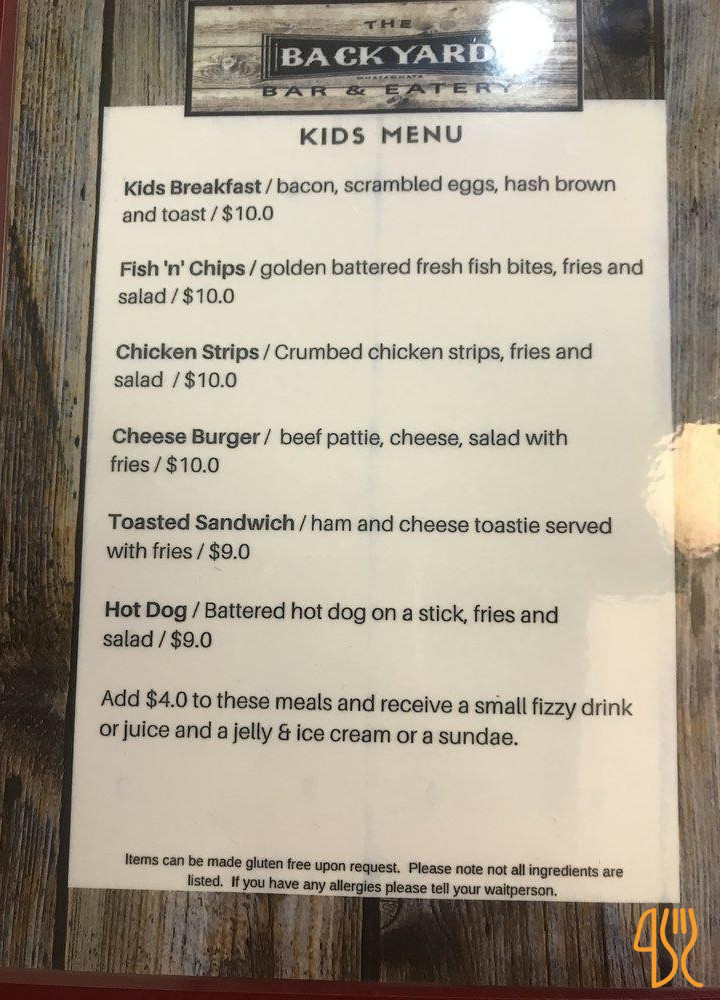 THE
BACKYARD
WHATAWHATA
BAR & EATERY
KIDS MENU
Kids Breakfast / bacon, scrambled eggs, hash brown
and toast / $10.0
Fish 'n' Chips / golden battered fresh fish bites, fries and
salad / $10.0
Chicken Strips / Crumbed chicken strips, fries and
salad / $10.0
Cheese Burger / beef pattie, cheese, salad with
fries / $10.0
Toasted Sandwich / ham and cheese toastie served
with fries / $9.0
Hot Dog / Battered hot dog on a stick, fries and
salad / $9.0
Add $4.0 to these meals and receive a small fizzy drink
or juice and a jelly & ice cream or a sundae.
Items can be made gluten free upon request. Please note not all ingredients are
listed. If you have any allergies please tell your waitperson.